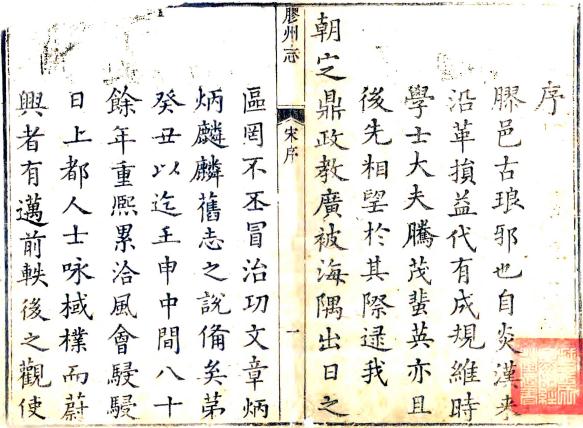 序
膠邑古琅邪也自炎漢來
沿革損益代有成規維時
學士大夫騰茂蜚英亦且
後先相望於其際逮我
朝定鼎政教廣被海隅出日之
膠州志
宋序
一
區罔不丕冒治功文章炳
炳麟麟舊志之說備矣第
癸丑以迄壬申中間八十
餘年重熈累洽風會駸駸
日上都人士咏棫樸而蔚
興者有邁前軼後之觀使